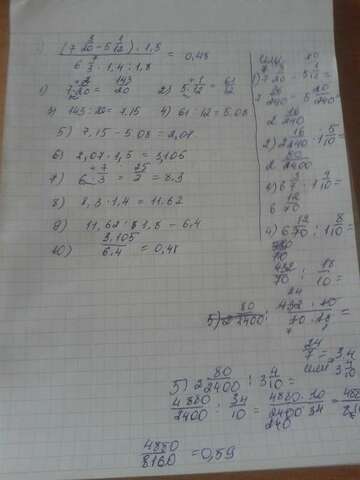 (7 3/20 - 5 1/12) · 1,5
6 7/3 · 1,4 : 1,8
= 0,48
1) 7 3/20 = 143/20 2) 5 1/12 = 61/12
3) 143 : 20 = 7.15 4) 61 : 12 = 5.08
5) 7.15 - 5.08 = 2,07
6) 2,07 · 1,5 = 3,105
7) 6 7/3 = 25/3 = 8.3
8) 8,3 · 1,4 = 11.62
9) 11,62 : 1,8 = 6.4
10) 3,105/6,4 = 0,48
1) 7 3/20 - 5 1/12 =
2 16/240
2) 2 16/240 · 1 5/10 =
2 80/2400
6 12/70
4) 6 12/70 : 1 8/10 =
432/70 : 18/10 =
24/7 = 3,4
3 4/10
5) 2 80/2400 : 3 4/10 =
4880/2400 : 34/10 = 4880 · 10/2400 · 34 =
240
4880/8160 = 0,59